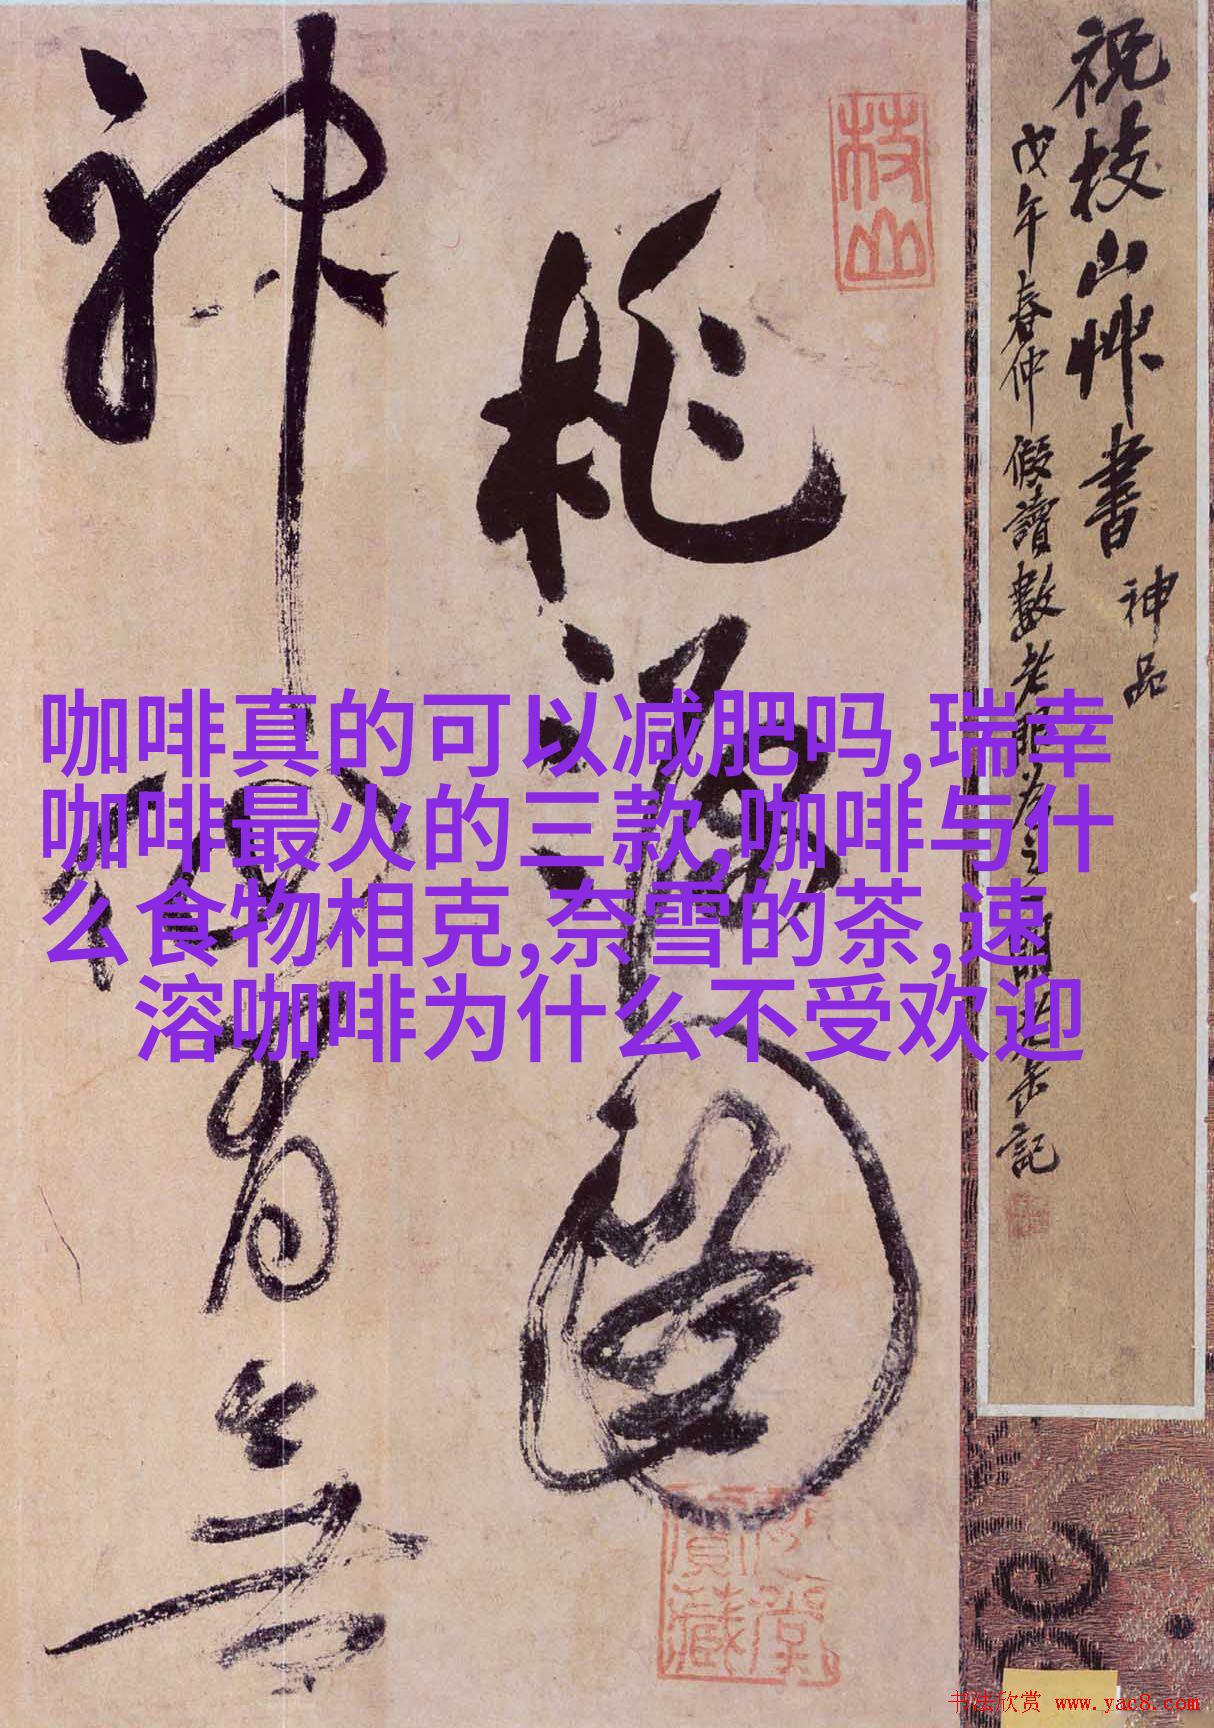 祝枝山艸書 神品
戊午春仲假讀數
記
枝山
桃源圖
神仙有無
咖啡真的可以减肥吗,瑞幸
咖啡最火的三款,咖啡与什
么食物相克,奈雪的茶,速
溶咖啡为什么不受欢迎
书法欣赏 www.yac8.com